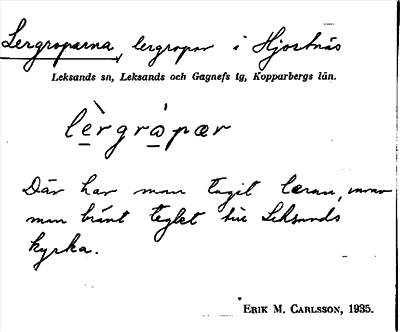 Lergroparna, lergropar i Hjortnäs
Leksands sn, Leksands och Gagnefs tg, Kopparbergs län.
lèrgrȧpær
Där har man tagit leran, varav
man bränt teglet till Leksands
kyrka.
ERIK M. CARLSSON, 1935.